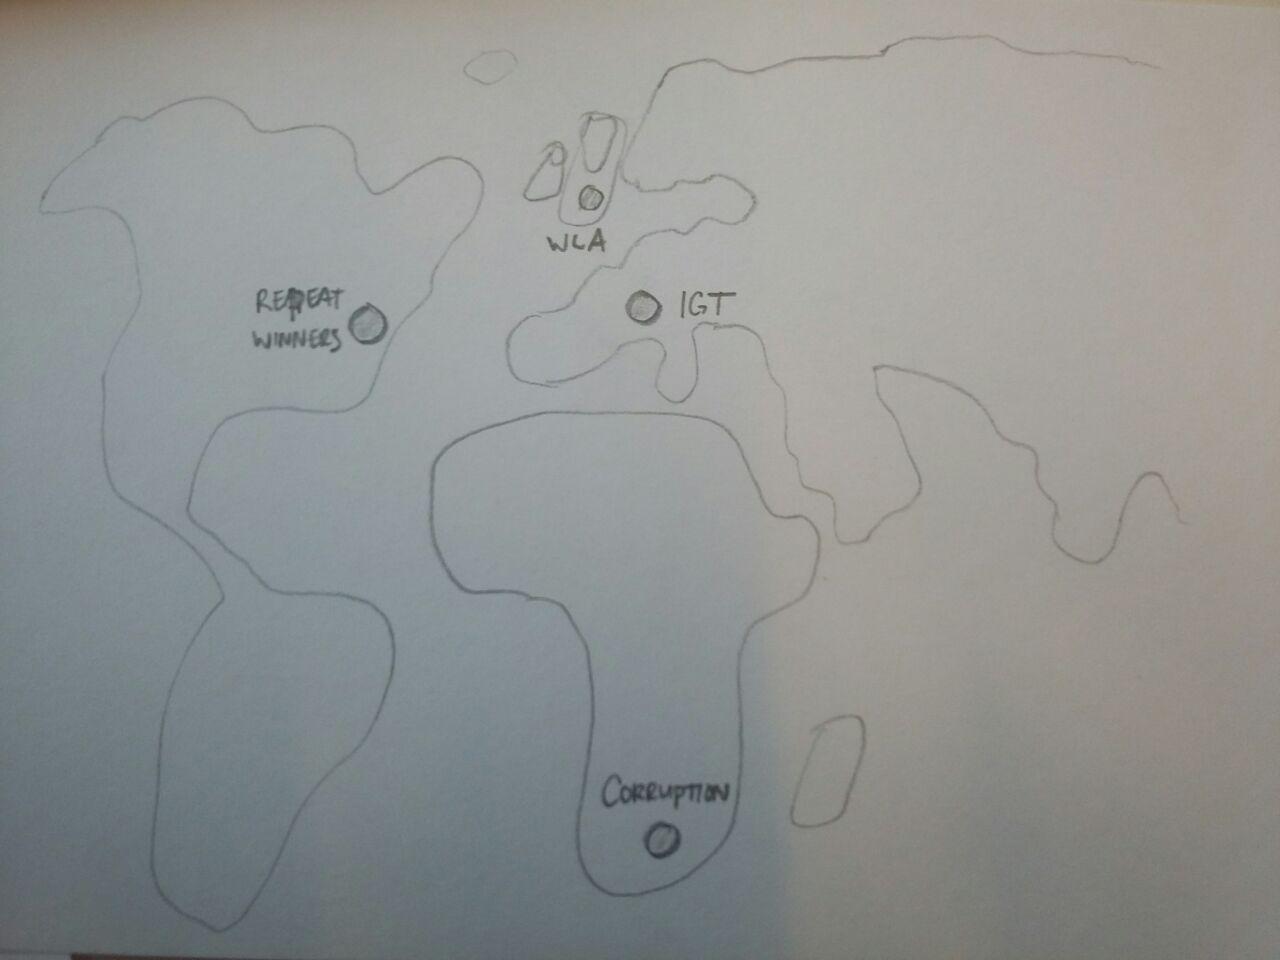 WLA
REPEAT
WINNERS
IGT
CORRUPTION